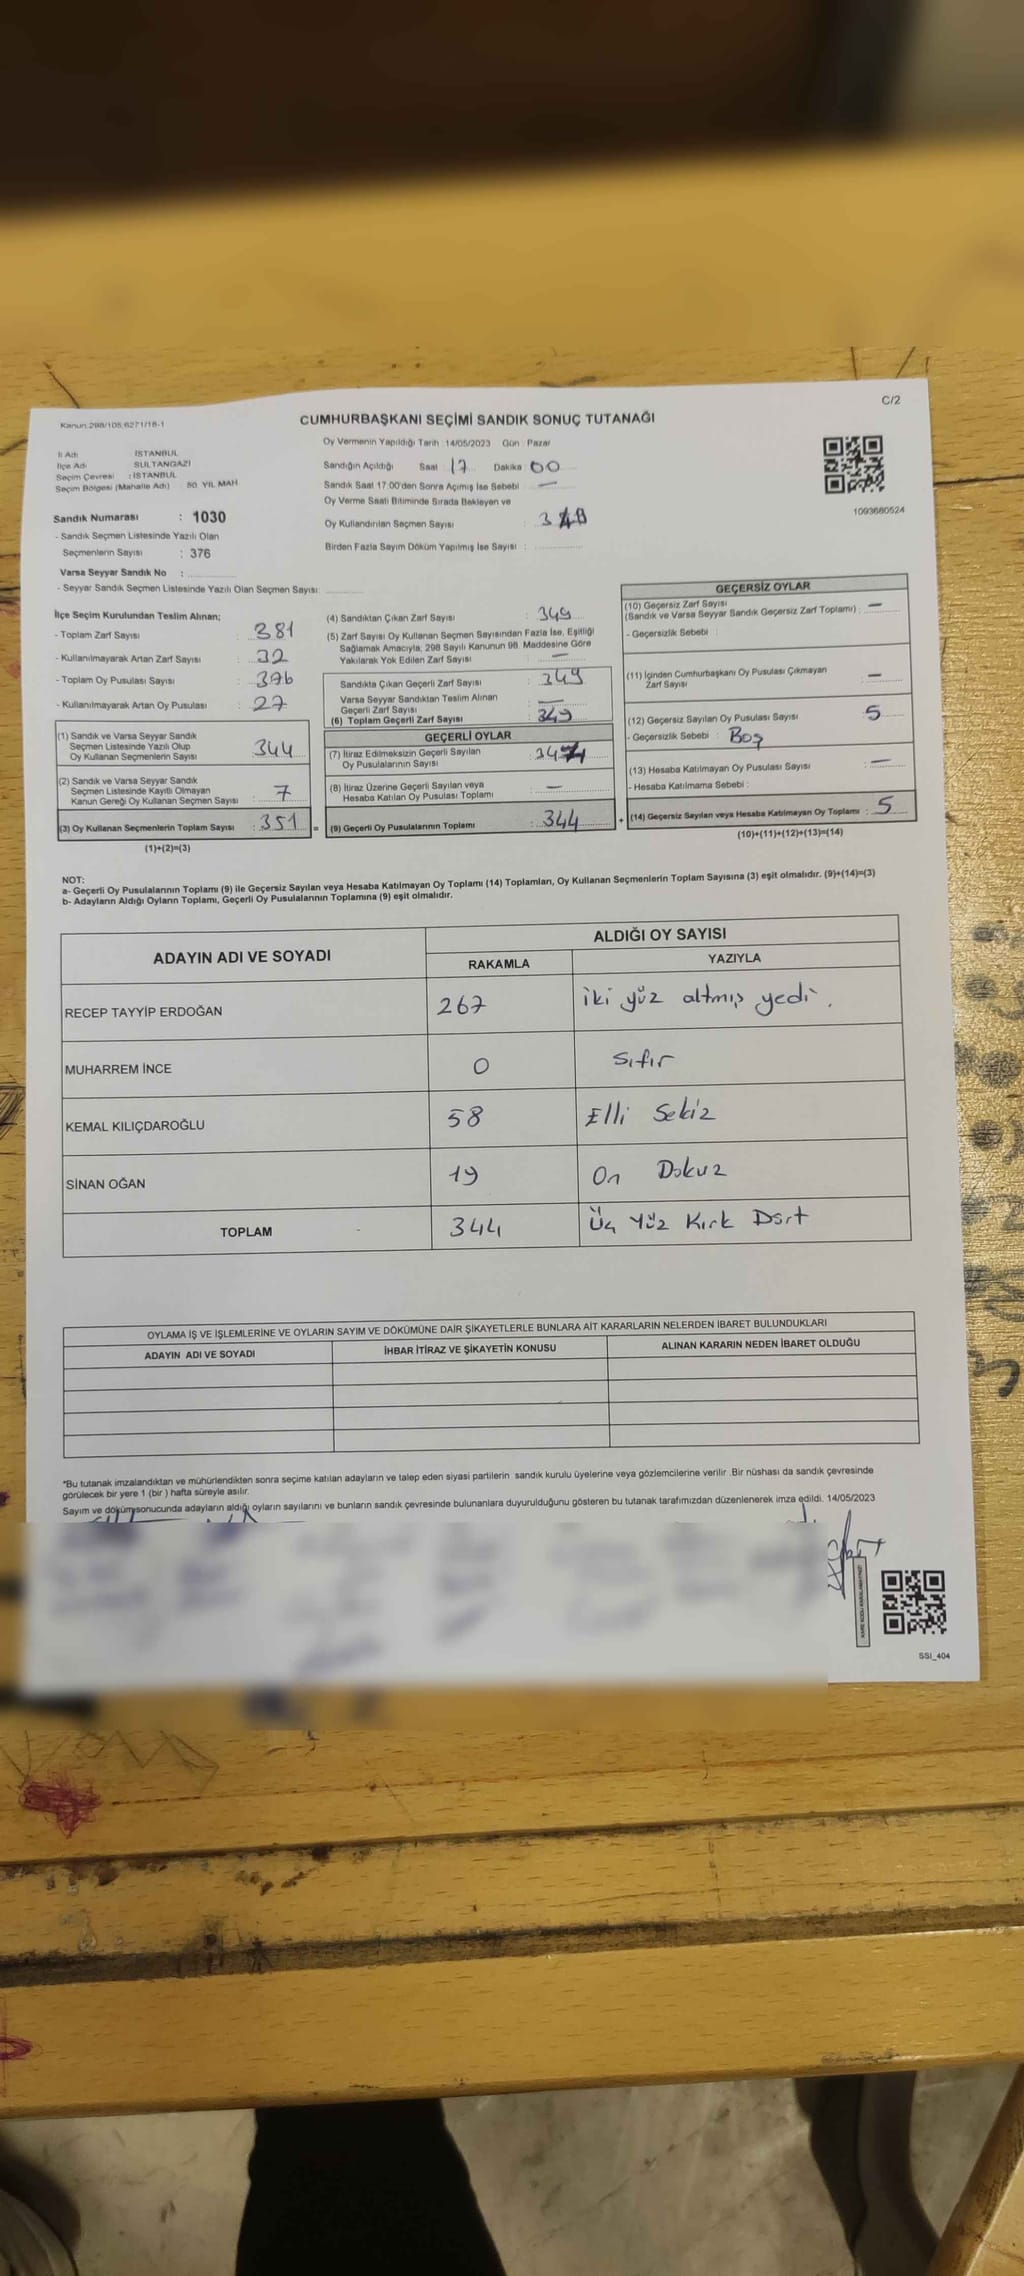 C/2
Kanun:298/105;6271/18-1
CUMHURBAŞKANI SEÇİMİ SANDIK SONUÇ TUTANAĞI
İl Adı İSTANBUL
İlçe Adı SULTANGAZİ
Seçim Çevresi : İSTANBUL
Seçim Bölgesi (Mahalle Adı) : 50. YIL MAH
Oy Vermenin Yapıldığı Tarih : 14/05/2023 Gün : Pazar
Sandığın Açıldığı Saat 17 Dakika 00
Sandık Saat 17:00'den Sonra Açılmış İse Sebebi : —
Oy Verme Saati Bitiminde Sırada Bekleyen ve
Oy Kullandırılan Seçmen Sayısı :
Birden Fazla Sayım Döküm Yapılmış İse Sayısı :
1093680524
Sandık Numarası : 1030
- Sandık Seçmen Listesinde Yazılı Olan
Seçmenlerin Sayısı : 376
Varsa Seyyar Sandık No :
- Seyyar Sandık Seçmen Listesinde Yazılı Olan Seçmen Sayısı:
İlçe Seçim Kurulundan Teslim Alınan;
- Toplam Zarf Sayısı : 381
- Kullanılmayarak Artan Zarf Sayısı : 32
- Toplam Oy Pusulası Sayısı : 376
- Kullanılmayarak Artan Oy Pusulası : 27
(1) Sandık ve Varsa Seyyar Sandık
Seçmen Listesinde Yazılı Olup
Oy Kullanan Seçmenlerin Sayısı : 344
(2) Sandık ve Varsa Seyyar Sandık
Seçmen Listesinde Kayıtlı Olmayan
Kanun Gereği Oy Kullanan Seçmen Sayısı : 7
(3) Oy Kullanan Seçmenlerin Toplam Sayısı : 351
(1)+(2)=(3)
(4) Sandıktan Çıkan Zarf Sayısı : 349
(5) Zarf Sayısı Oy Kullanan Seçmen Sayısından Fazla İse, Eşitliği
Sağlamak Amacıyla, 298 Sayılı Kanunun 98. Maddesine Göre
Yakılarak Yok Edilen Zarf Sayısı : —
Sandıkta Çıkan Geçerli Zarf Sayısı : 349
Varsa Seyyar Sandıktan Teslim Alınan
Geçerli Zarf Sayısı : —
(6) Toplam Geçerli Zarf Sayısı : 349
GEÇERLİ OYLAR
(7) İtiraz Edilmeksizin Geçerli Sayılan
Oy Pusulalarının Sayısı :
(8) İtiraz Üzerine Geçerli Sayılan veya
Hesaba Katılan Oy Pusulası Toplamı : —
= (9) Geçerli Oy Pusulalarının Toplamı : 344
GEÇERSİZ OYLAR
(10) Geçersiz Zarf Sayısı
(Sandık ve Varsa Seyyar Sandık Geçersiz Zarf Toplamı) : —
- Geçersizlik Sebebi :
(11) İçinden Cumhurbaşkanı Oy Pusulası Çıkmayan
Zarf Sayısı : —
(12) Geçersiz Sayılan Oy Pusulası Sayısı : 5
- Geçersizlik Sebebi : Boş
(13) Hesaba Katılmayan Oy Pusulası Sayısı : —
- Hesaba Katılmama Sebebi :
+ (14) Geçersiz Sayılan veya Hesaba Katılmayan Oy Toplamı : 5
(10)+(11)+(12)+(13)=(14)
NOT:
a- Geçerli Oy Pusulalarının Toplamı (9) ile Geçersiz Sayılan veya Hesaba Katılmayan Oy Toplamı (14) Toplamları, Oy Kullanan Seçmenlerin Toplam Sayısına (3) eşit olmalıdır. (9)+(14)=(3)
b- Adayların Aldığı Oyların Toplamı, Geçerli Oy Pusulalarının Toplamına (9) eşit olmalıdır.
ADAYIN ADI VE SOYADI ALDIĞI OY SAYISI
RAKAMLA YAZIYLA
RECEP TAYYİP ERDOĞAN 267 iki yüz altmış yedi.
MUHARREM İNCE 0 Sıfır
KEMAL KILIÇDAROĞLU 58 Elli Sekiz
SİNAN OĞAN 19 On Dokuz
TOPLAM 344 Üç Yüz Kırk Dört
OYLAMA İŞ VE İŞLEMLERİNE VE OYLARIN SAYIM VE DÖKÜMÜNE DAİR ŞİKAYETLERLE BUNLARA AİT KARARLARIN NELERDEN İBARET BULUNDUKLARI
ADAYIN ADI VE SOYADI İHBAR İTİRAZ VE ŞİKAYETİN KONUSU ALINAN KARARIN NEDEN İBARET OLDUĞU
*Bu tutanak imzalandıktan ve mühürlendikten sonra seçime katılan adayların ve talep eden siyasi partilerin sandık kurulu üyelerine veya gözlemcilerine verilir .Bir nüshası da sandık çevresinde
görülecek bir yere 1 (bir ) hafta süreyle asılır.
Sayım ve dökümsonucunda adayların aldığı oyların sayılarını ve bunların sandık çevresinde bulunanlara duyurulduğunu gösteren bu tutanak tarafımızdan düzenlenerek imza edildi. 14/05/2023
SSI_404